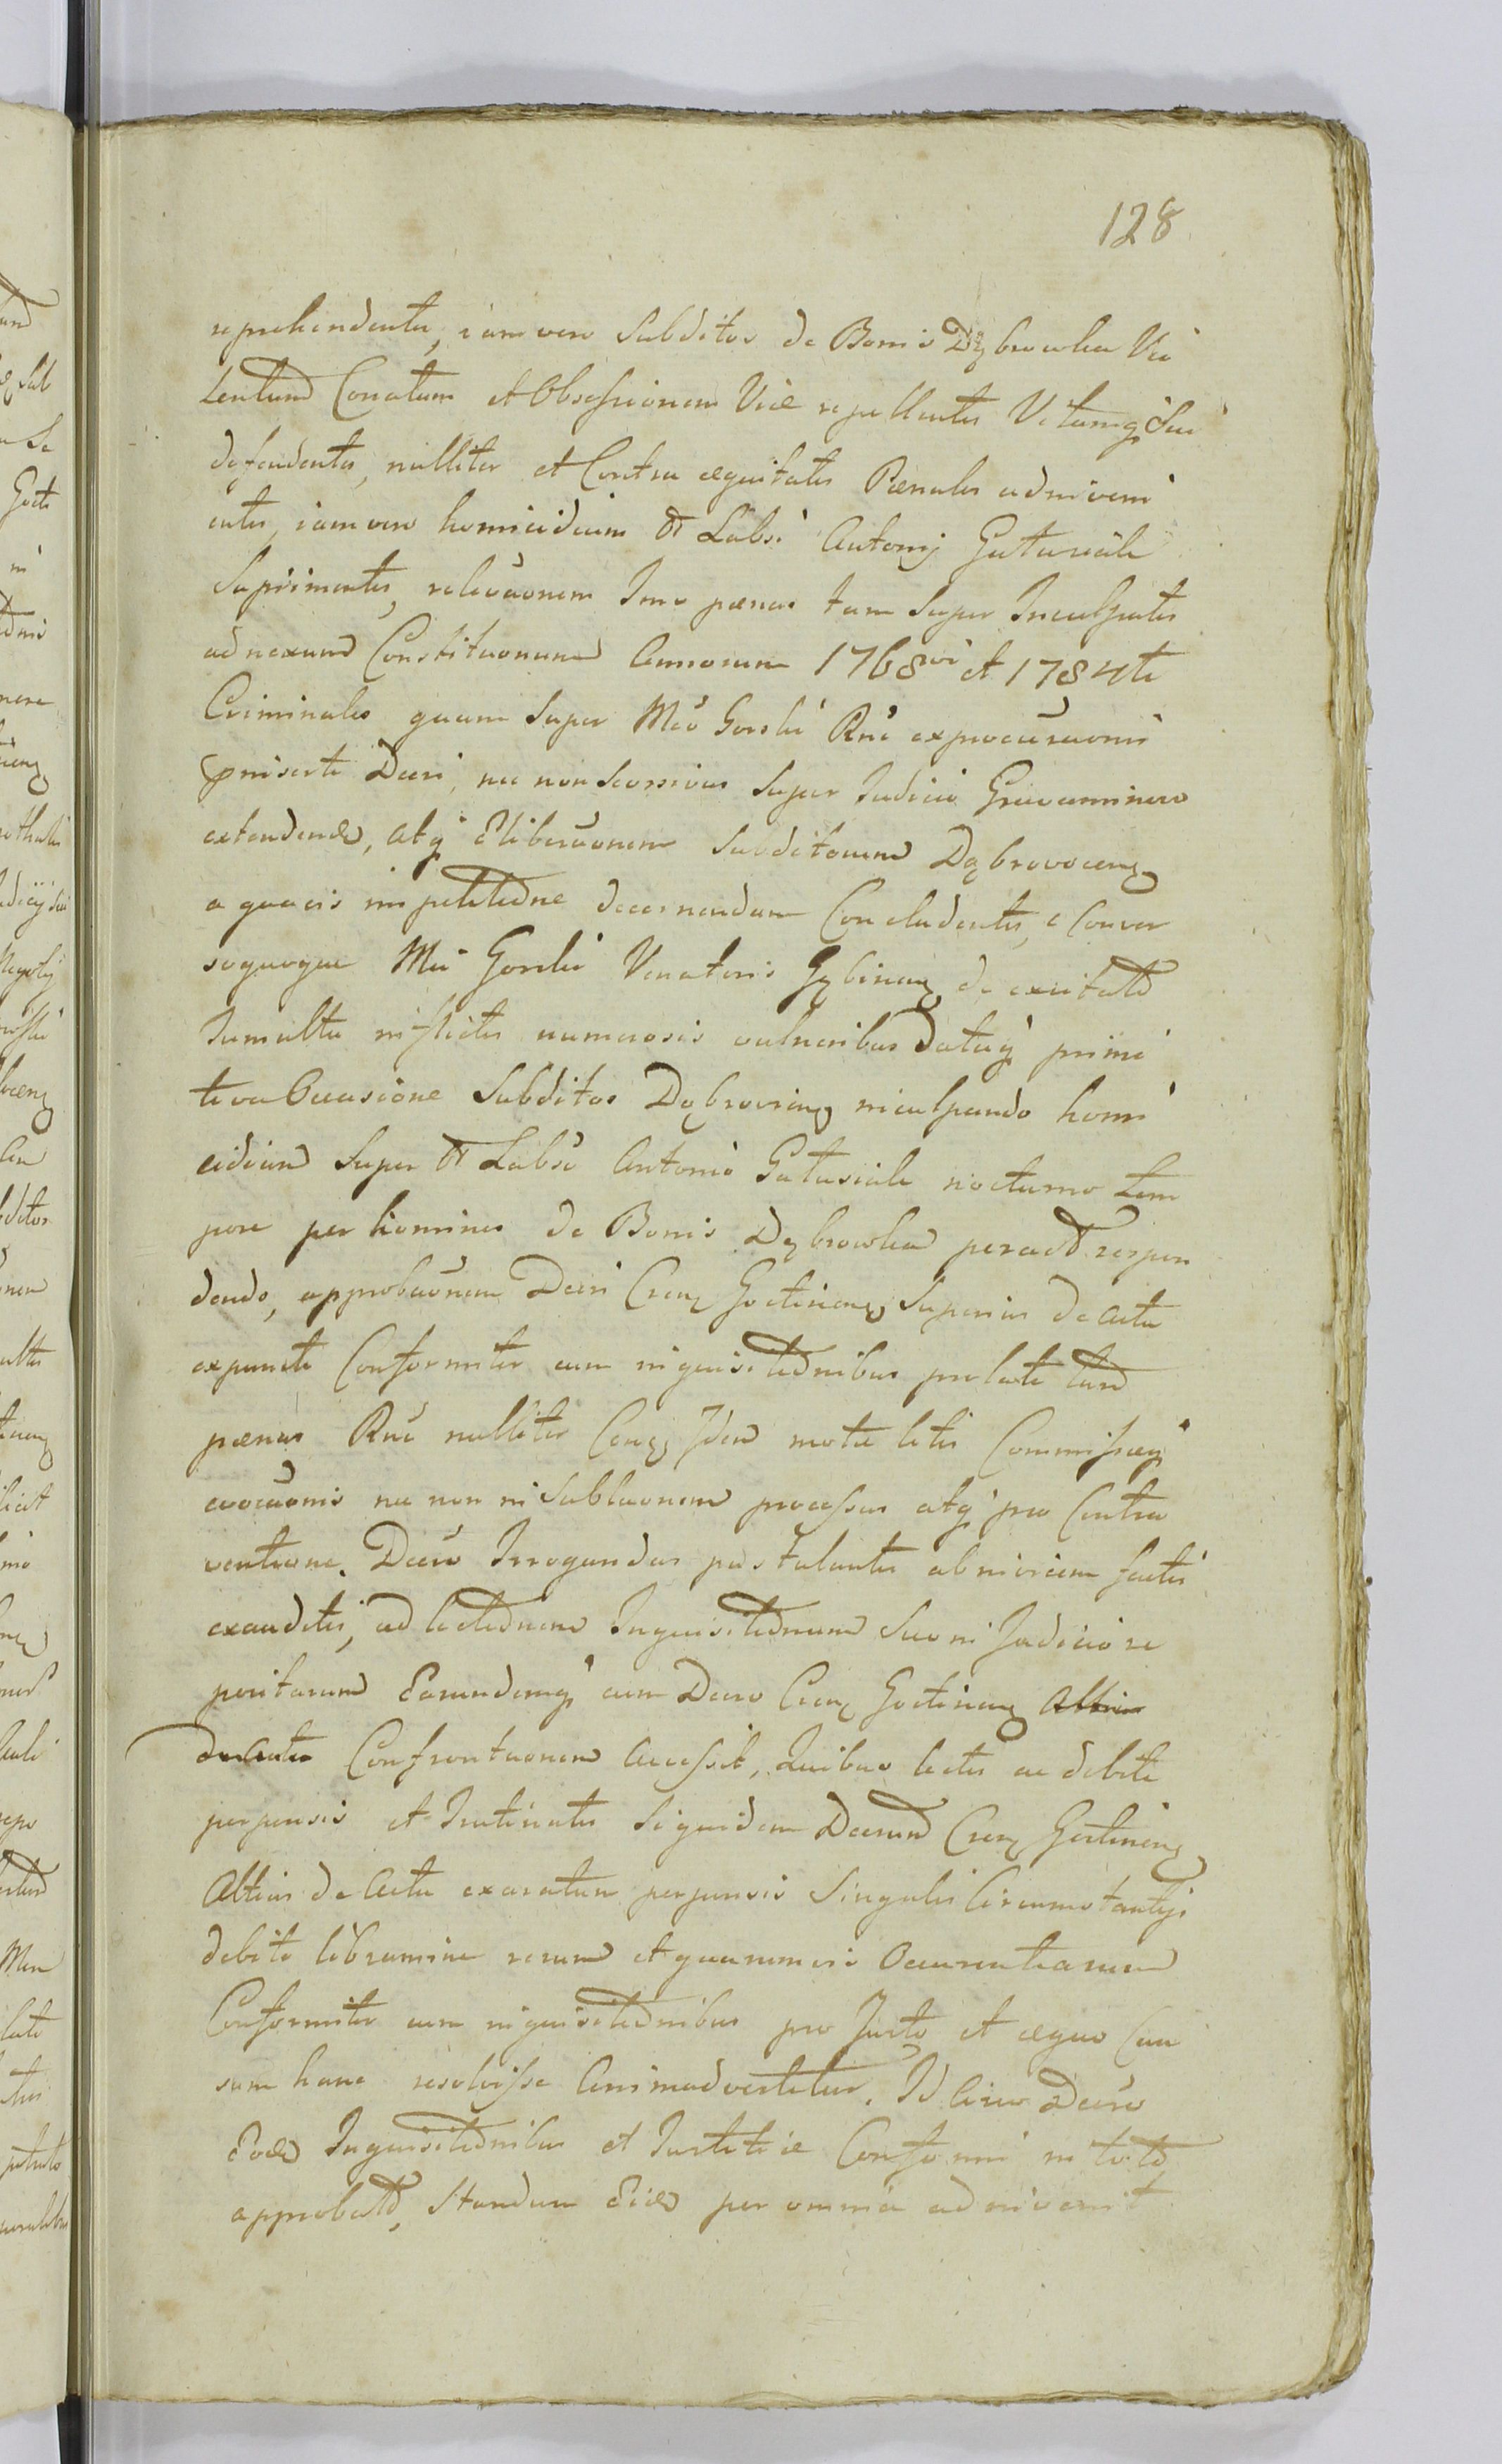 128
reprehendentes, iam vero Subditos de Bonis Dąbrowka Vio
lentum Conatum et Obsessionem Viæ repellentes Vitamq̇ Sua
defendentes, nulliter et Contra æquitates Pœnales adinveni
entes, iam vero homicidium Labsi Antonij Gatusiale
Suprimentes, relevãonem Imo pœnas tam Super Inculpatis
adnexum Constitutionum Annorum 1768vi et 1784ti
Criminales quam Super Mco Gorski Rnẽ ex procurãonis
pmiserti Decri, nec non Super Judicio Gravaminero
extendend, atq̇ Eliberãonem Subditorum Dąbrovocens
a quavis impetitione decernendam Concludentes, e Conver
soquoque Mci Gorski Venatoris Gębinens de excitatto
tumultu inflictis numerosis vulneribus Dataq̇ primi
tiva Occasione Subditos Dąbrovien inculpando homi
cidium Super Labsi Antonio Gatusiale nocturno tem
pore per homines de Bonis Dąbrowka peract respon
dendo, approbãonem Decri Cren Gostinens Superius de actu
expuncti Conformiter cum inquisitionibus prolati tum
pœnas Rnẽ nulliter motæ litis Commissæq̇
evocãonis nec non in Sublãonem processus atq̇ pro Contra
ventione Decro Irrogandas postulantes ab invicem factis
exauditis, ad lectionem Inquisitionum Suo in Judicio re
peritarum Earundemq̇ cum Decro Cren Gostinens Altius
de Actu Confrontãonem Accessit, Quibus lectis ac debite
perpensis et trutinatis Siquidem Decrum Cren Gostinens
Altius de Actu exaratum perpensis Singulis Circumstantijs
debito libramine rerum et quarumvis Occurrentiarum
Conformiter cum inquisitionibus pro Justo et æquo Cau
sam hanc resolvisse Animadvertitur. Id Circo Decro
Eod Inquisitionibus et Iustitiæ Conformi in toto
approbato, Standum Eid per omnia adinvenit